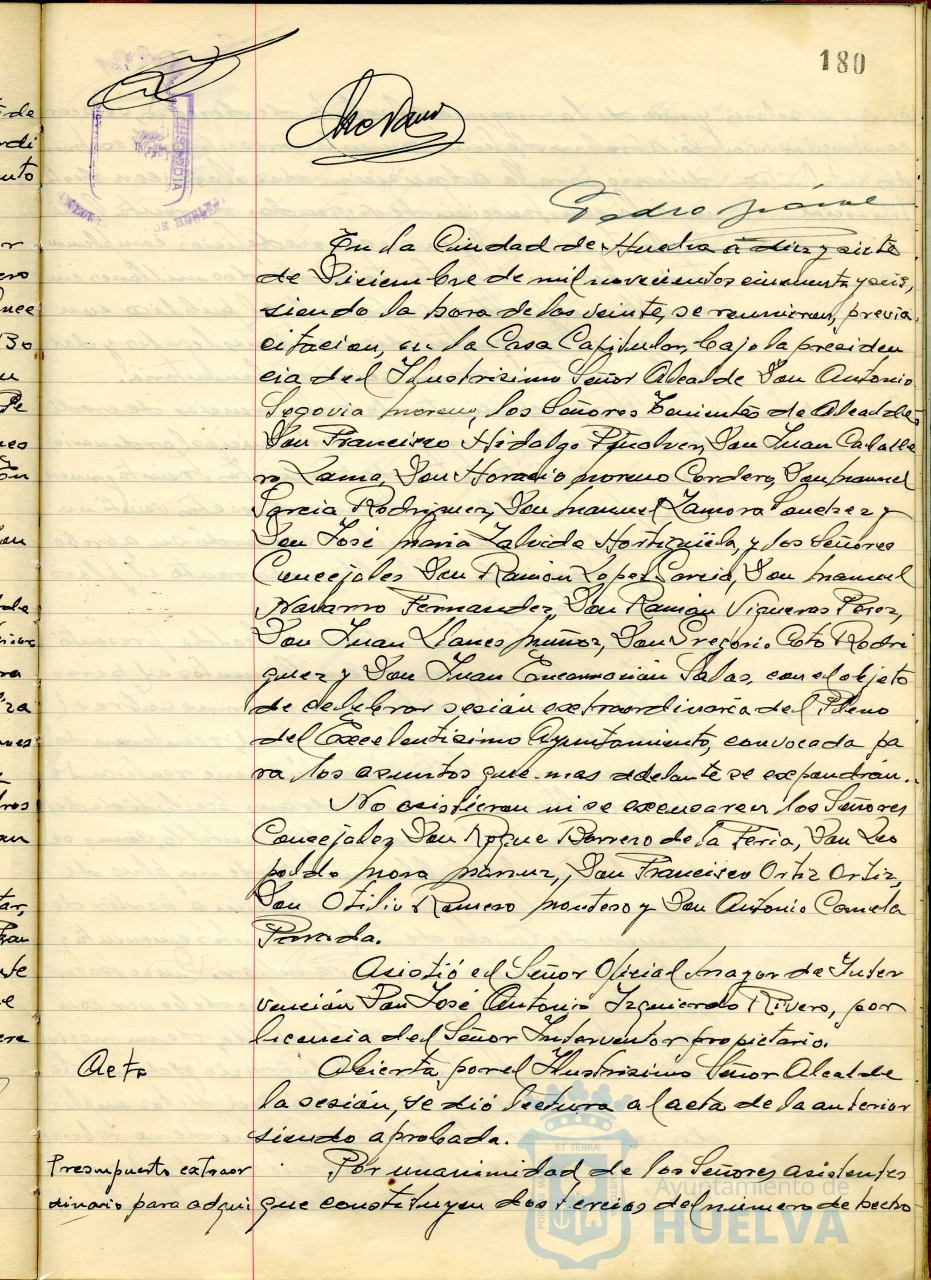 180
Pedro
En la Ciudad de Huelva a diez y siete
de Diciembre de mil novecientos cincuenta y seis,
siendo la hora de las veinte, se reunieron, previa
citacion, en la Casa Capitular, bajo la presiden
cia del Ilustrisimo Señor Alcalde Don Antonio
Segovia Moreno, los Señores Tenientes de Alcalde,
Don Francisco Hidalgo Peñalver, Don Juan Caballe
ro Lama, Don Horacio Moreno Cordero, Don Manuel
Garcia Rodriguez, Don Manuel Zamora Sanchez y
Don José Maria Zalvide Hortigüela, y los Señores
Concejales Don Ramón Lopez Garcia, Don Manuel
Navarro Fernandez, Don Ramón Vigueras Perez,
Don Juan Llanes Muñoz, Don Gregorio Coto Rodri
guez y Don Juan Encarnación Salas, con el objeto
de celebrar sesión extraordinaria del Pleno
del Excelentisimo Ayuntamiento, convocada pa
ra los asuntos que mas adelante se expondrán.
No asistieron ni se excusaron los Señores
Concejales Don Roque Barrero de la Feria, Don Leo
poldo Mora, Don Francisco Ortiz Ortiz,
Don Otilio Romero Montero y Don Antonio Camela
Parada.
Asistió el Señor Oficial Mayor de Inter
vención Don José Antonio Izquierdo Rivero, por
licencia del Señor Interventor propietario.
Acta
Abierta por el Ilustrisimo Señor Alcalde
la sesión, se dió lectura al acta de la anterior
siendo aprobada.
Presupuesto extraor
dinario para adqui
Por unanimidad de los Señores asistentes
que constituyen dos tercios del número de hecho
Ayuntamiento de
HUELVA